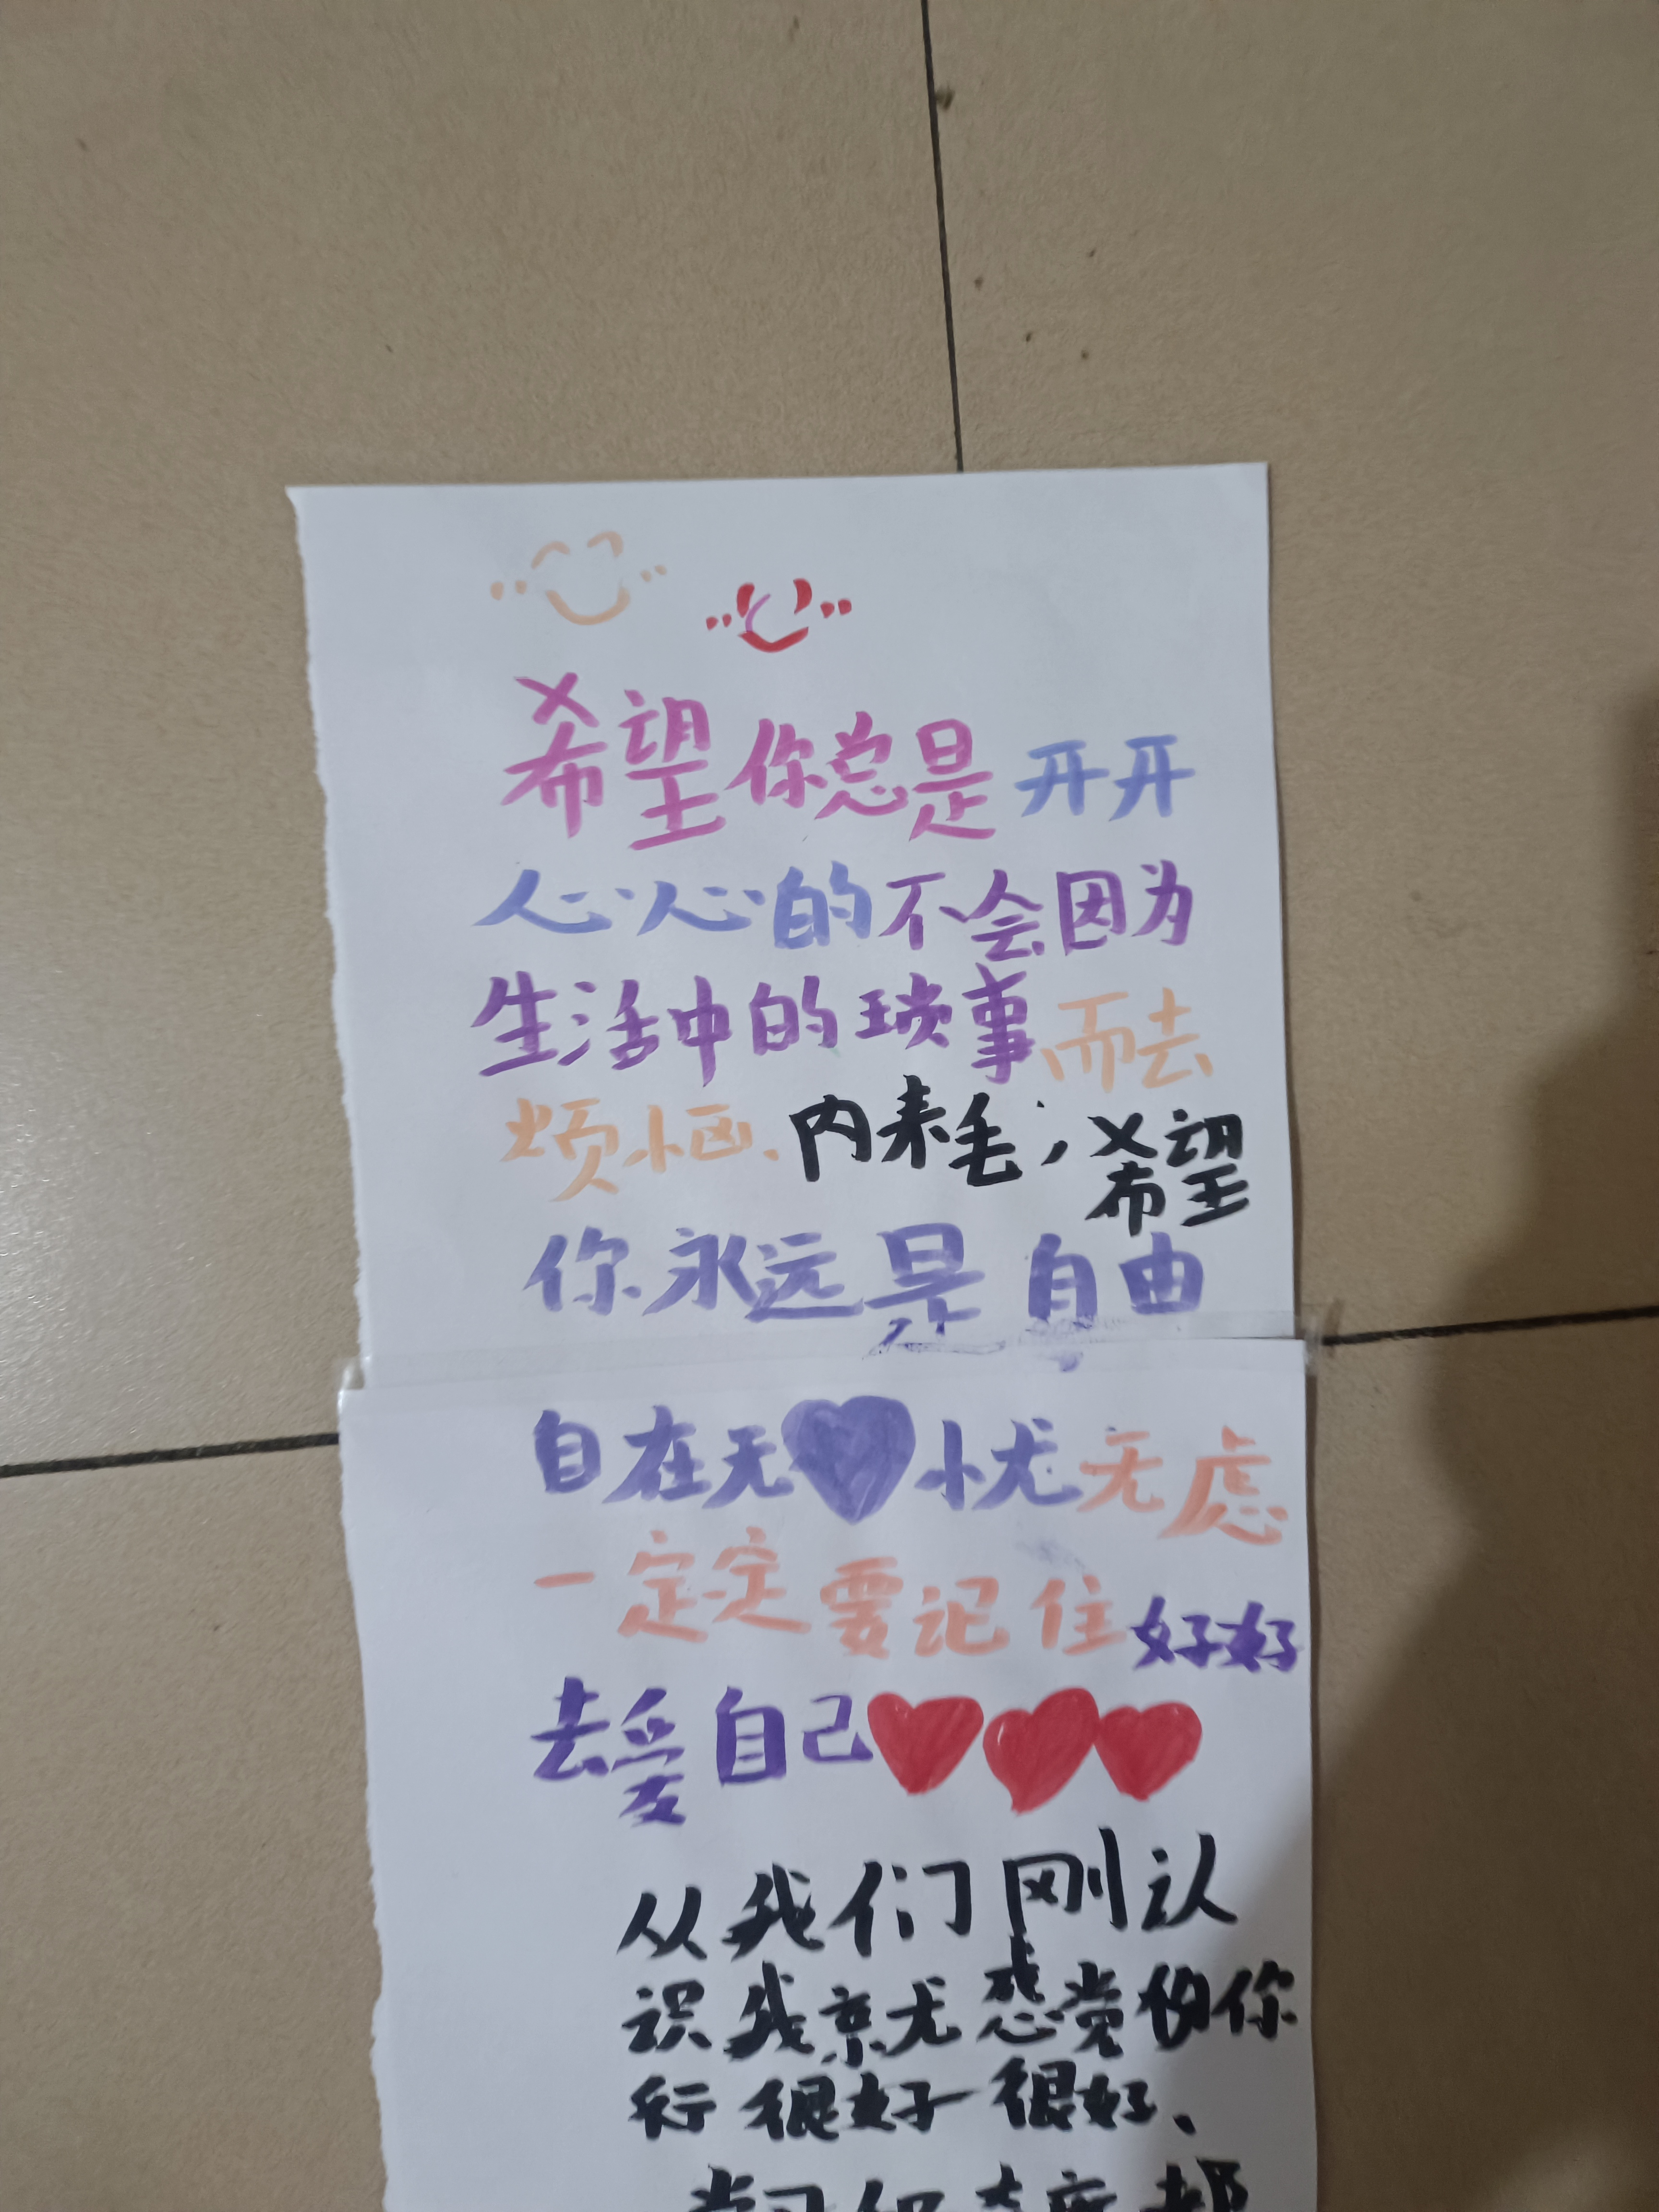 希望你总是开开
心心的不会因为
生活中的琐事而去
烦恼、内耒毛，希望
你永远是自由
自在无忧无虑
一定定要记住好好
去爱自己
从我们刚认
识我就感觉的你
行很好很好、
学习的态度都